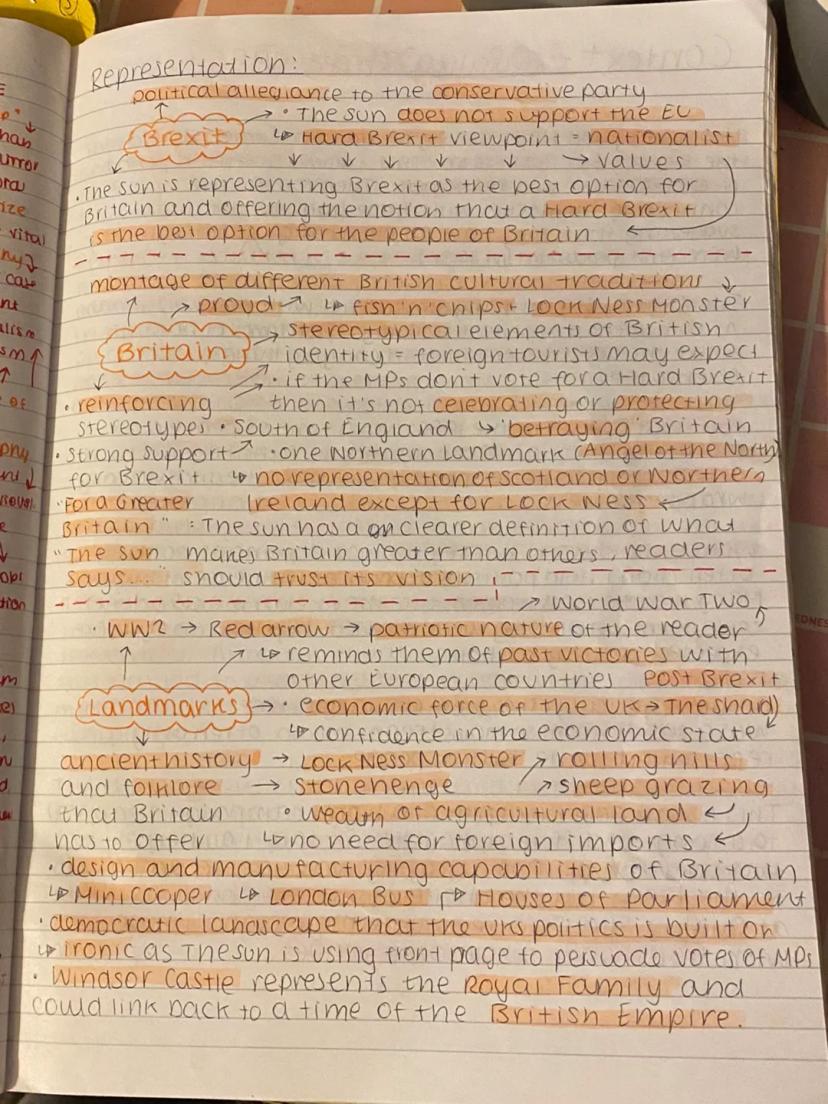 Representation:
political allegiance to the conservative party
• The sun does not support the EU
Brexit
↳ Hard Brexit viewpoint = nationalist
→ values
• The sun is representing Brexit as the best option for
Britain and offering the notion that a Hard Brexit
is the best option for the people of Britain
montage of different British cultural traditions
proud ↳ fish'n'chips + Lock Ness Monster
stereotypical elements of British
Britain
identity = foreign tourists may expect
• if the MPs don't vote for a Hard Brexit
• reinforcing then it's not celebrating or protecting
stereotypes • South of England → 'betraying' Britain
• Strong support • one Northern Landmark (Angel of the North)
for Brexit ↳ no representation of Scotland or Northern
"For a Greater Ireland except for Lock Ness
Britain" : The sun has a an clearer definition of what
"The sun makes Britain greater than others, readers
says..." should trust its vision
→ World War Two
• WW2 → Red arrow → patriotic nature of the reader
↳ reminds them of past victories with
other European countries Post Brexit
Landmarks → • economic force of the UK → The shard
↳ confidence in the economic state
ancient history → Lock Ness Monster → rolling hills
and folklore → Stonehenge → sheep grazing
that Britain • wealth of agricultural land
has to offer ↳ no need for foreign imports
• design and manufacturing capabilities of Britain
↳ Mini Cooper ↳ London Bus ↱ Houses of Parliament
• democratic landscape that the UKs politics is built on
↳ ironic as The sun is using front page to persuade votes of MPs
• Windsor Castle represents the Royal Family and
could link back to a time of the British Empire.